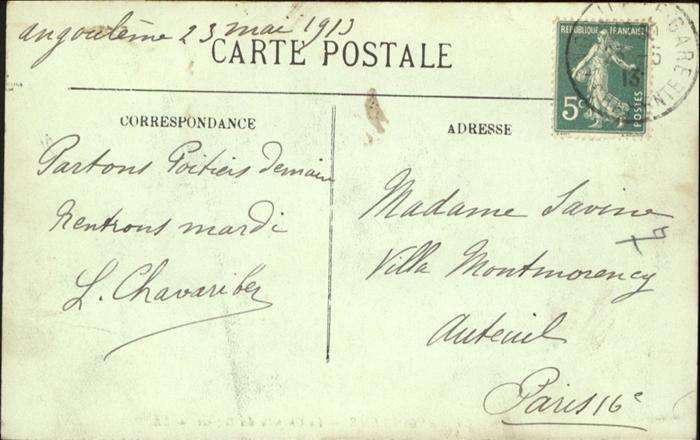 Angoulème 23 mai 1913
CARTE POSTALE
RÉPUBLIQUE FRANÇAISE
5c
POSTES
GARE
13
CORRESPONDANCE
ADRESSE
Partons Poitiers demain
Rentrons mardi
L. Chavaribey
Madame Savine
Villa Montmorency
Auteuil
Paris 16e